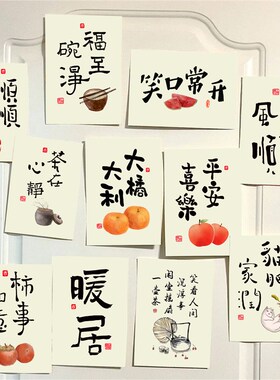 福至
碗淨
笑口常开
風順
順順
茶在
心靜
大橘
大利
平安
喜樂
柿事
暖居
笑看人间
沉浮事
闲坐摇扇
一壶茶
貓肥
家潤